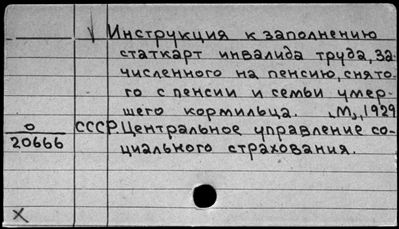 Инструкция к заполнению
статкарт инвалида труда, за-
численного на пенсию, снято-
го с пенсии и семьи умер-
шего кормильца. [М], 1929
О
20666
СССР Центральное управление со-
циального страхования.
X